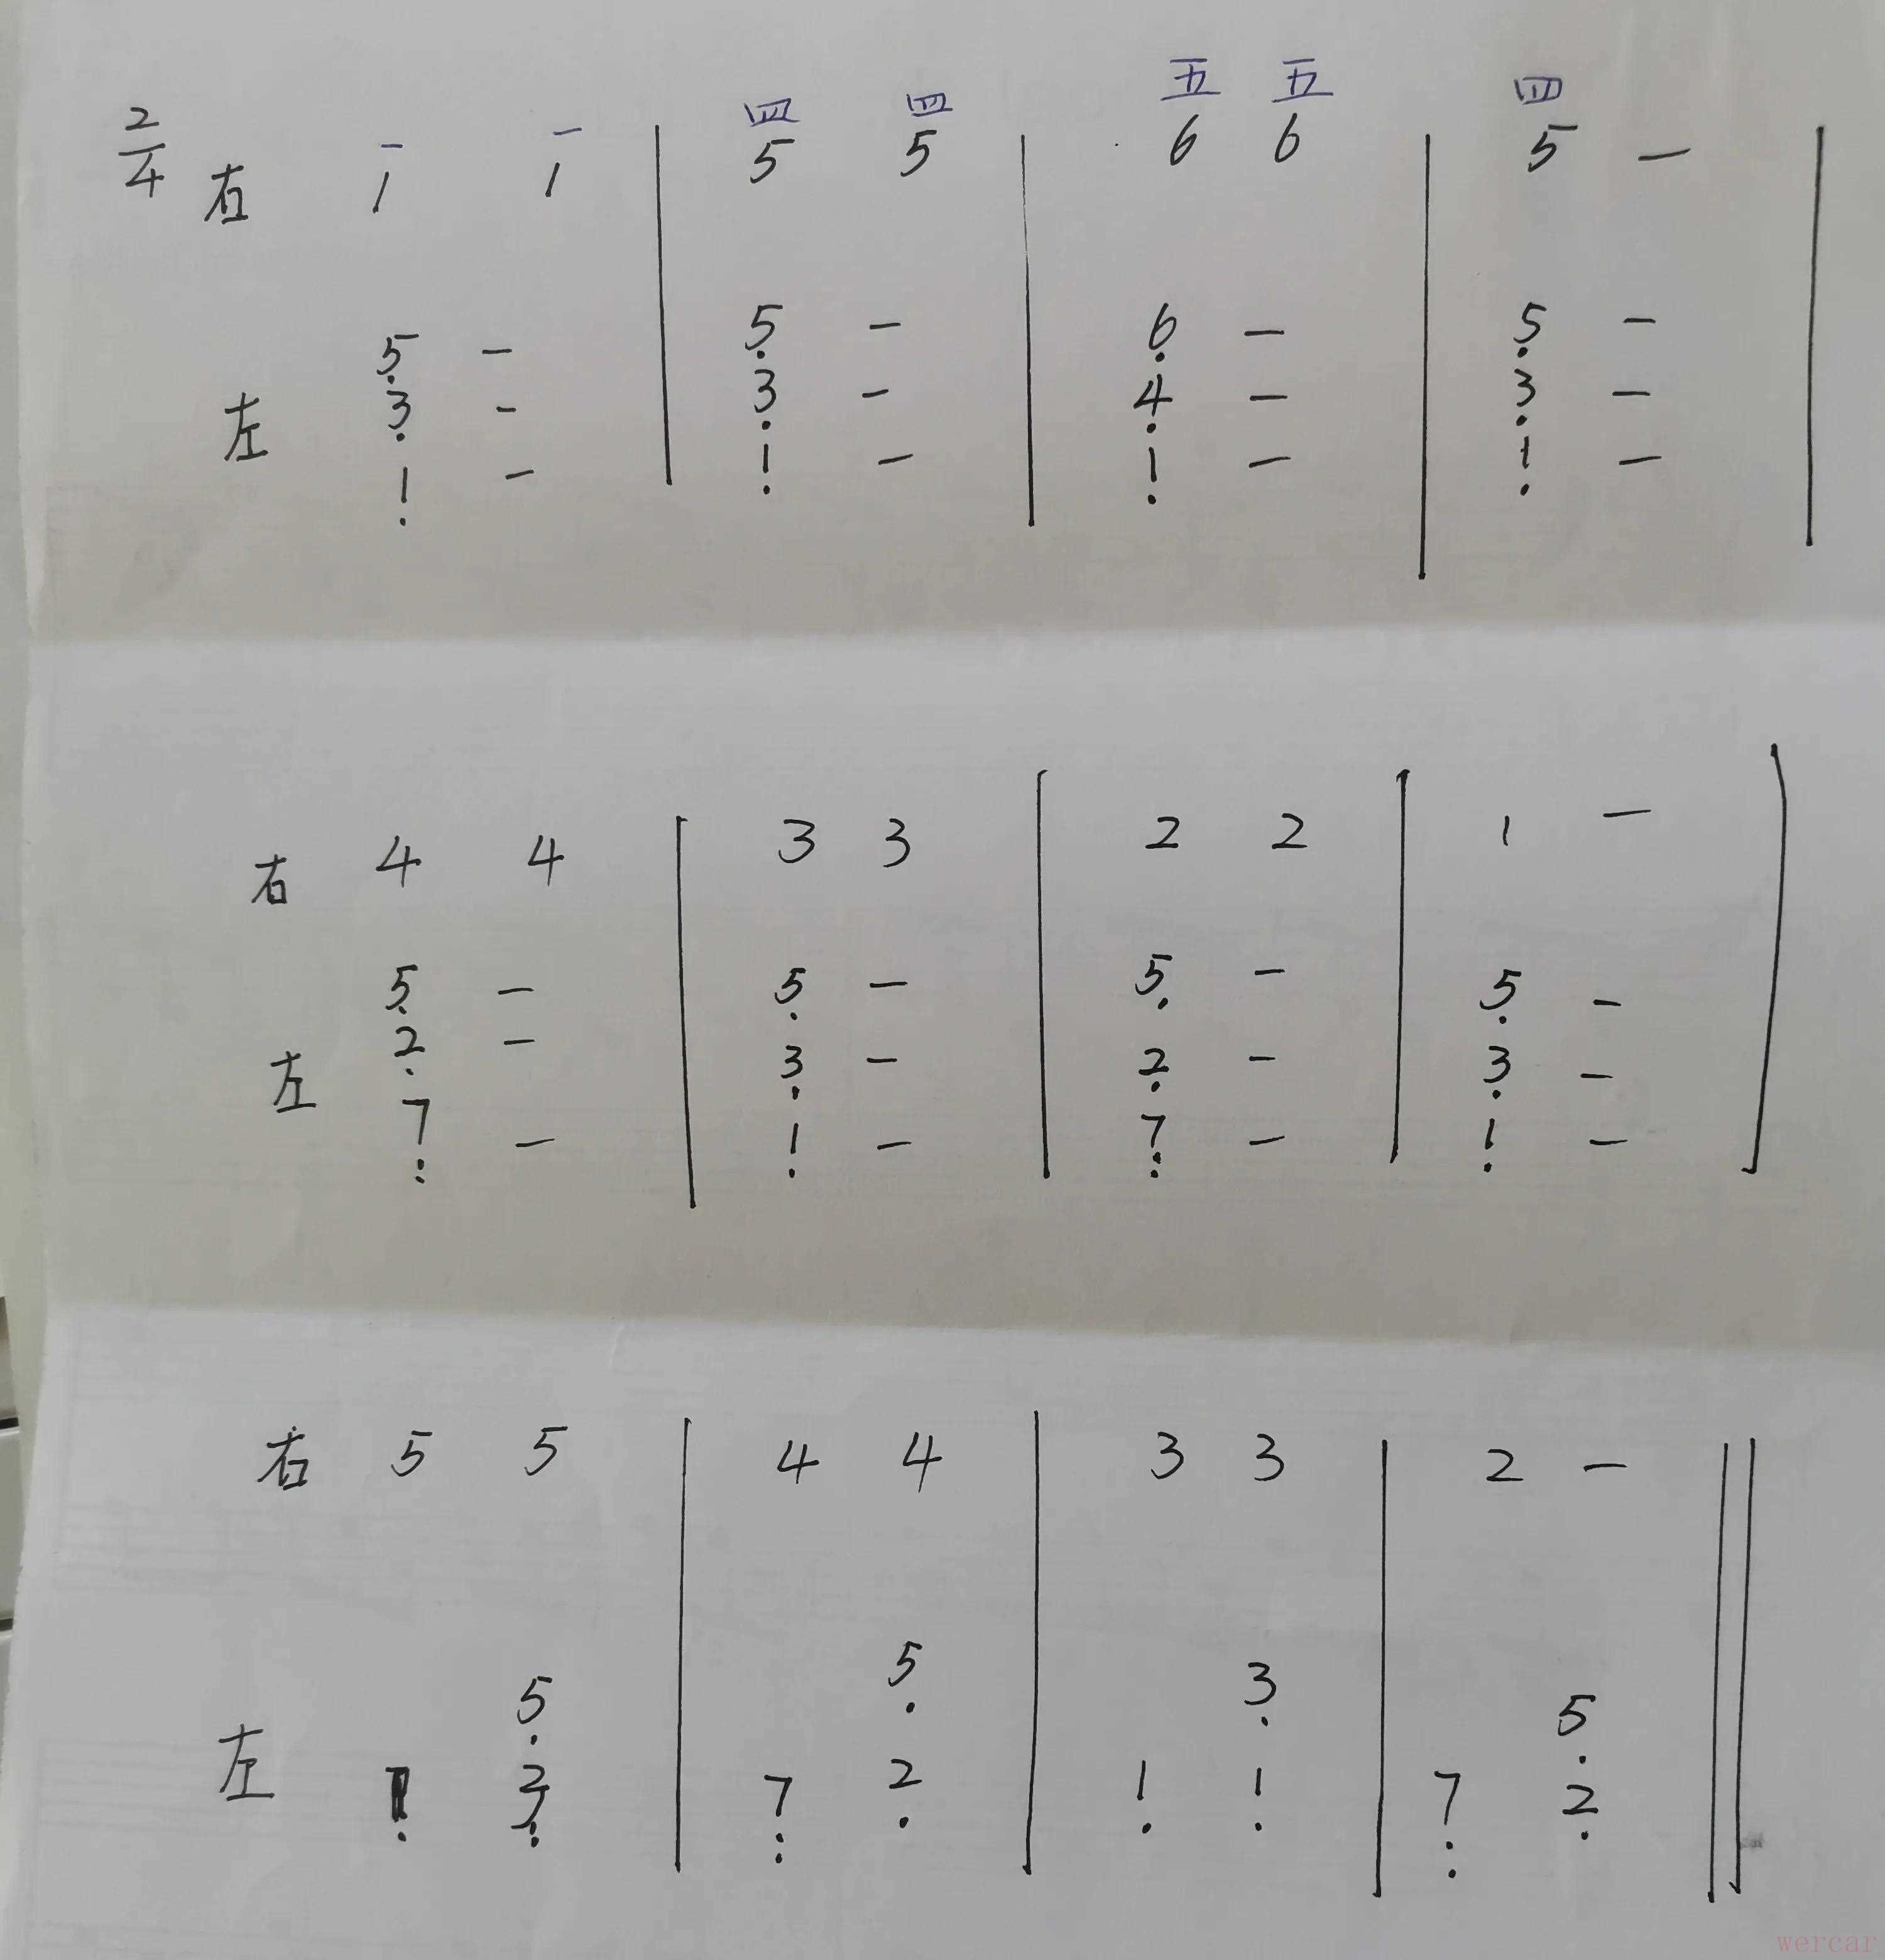 一 一 四 四 五 五 四
2/4 右 1 1 | 5 5 | 6 6 | 5 — |
5̣ — | 5̣ — | 6̣ — | 5̣ — |
左 3̣ — | 3̣ — | 4̣ — | 3̣ — |
1̣ — | 1̣ — | 1̣ — | 1̣ — |
右 4 4 | 3 3 | 2 2 | 1 — |
5̣ — | 5̣ — | 5̣ — | 5̣ — |
左 2̣ — | 3̣ — | 2̣ — | 3̣ — |
7̣̣ — | 1̣ — | 7̣̣ — | 1̣ — |
右 5 5 | 4 4 | 3 3 | 2 — ||
5̣ | 5̣ | 3̣ | 5̣ ||
左 | 7̣̣ 2̣ | 1̣ 1̣ | 7̣̣ 2̣ ||
wercar